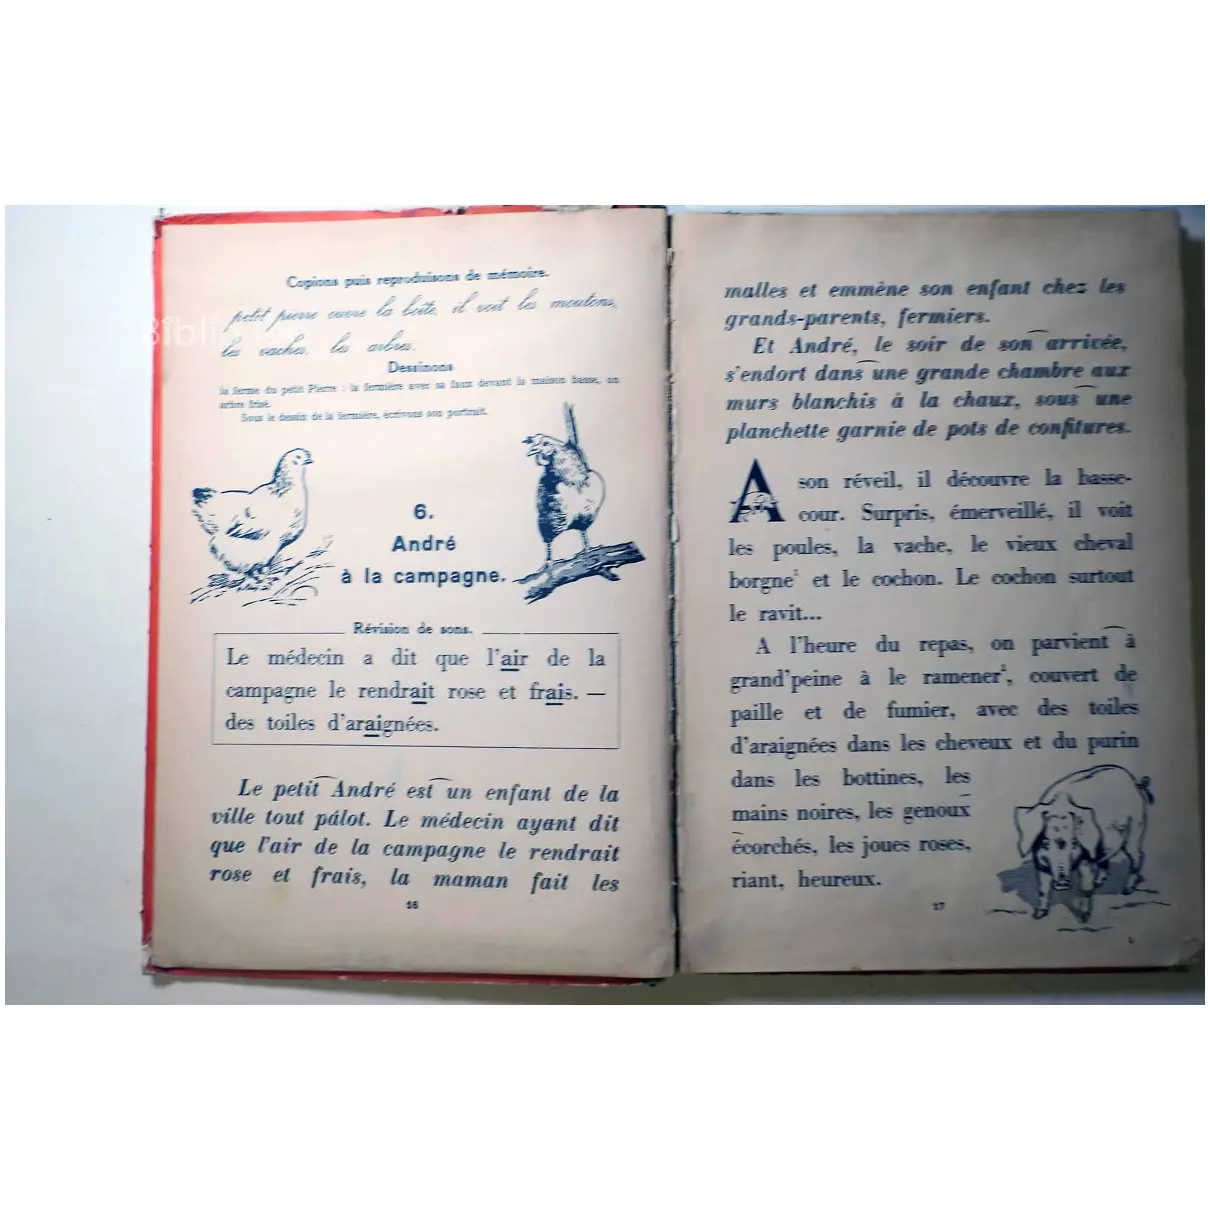 Copions puis reproduisons de mémoire.
petit pierre ouvre la boîte, il voit les moutons,
les vaches, les arbres.
Dessinons
la ferme du petit Pierre : la fermière avec sa faux devant la maison basse, un
arbre frisé.
Sous le dessin de la fermière, écrivons son portrait.
6.
André
à la campagne.
Révision de sons.
Le médecin a dit que l'air de la
campagne le rendrait rose et frais. —
des toiles d'araignées.
Le petit André est un enfant de la
ville tout pâlot. Le médecin ayant dit
que l'air de la campagne le rendrait
rose et frais, la maman fait les
16
malles et emmène son enfant chez les
grands-parents, fermiers.
Et André, le soir de son arrivée,
s'endort dans une grande chambre aux
murs blanchis à la chaux, sous une
planchette garnie de pots de confitures.
A son réveil, il découvre la basse-
cour. Surpris, émerveillé, il voit
les poules, la vache, le vieux cheval
borgne¹ et le cochon. Le cochon surtout
le ravit...
A l'heure du repas, on parvient à
grand'peine à le ramener², couvert de
paille et de fumier, avec des toiles
d'araignées dans les cheveux et du purin
dans les bottines, les
mains noires, les genoux
écorchés, les joues roses,
riant, heureux.
17